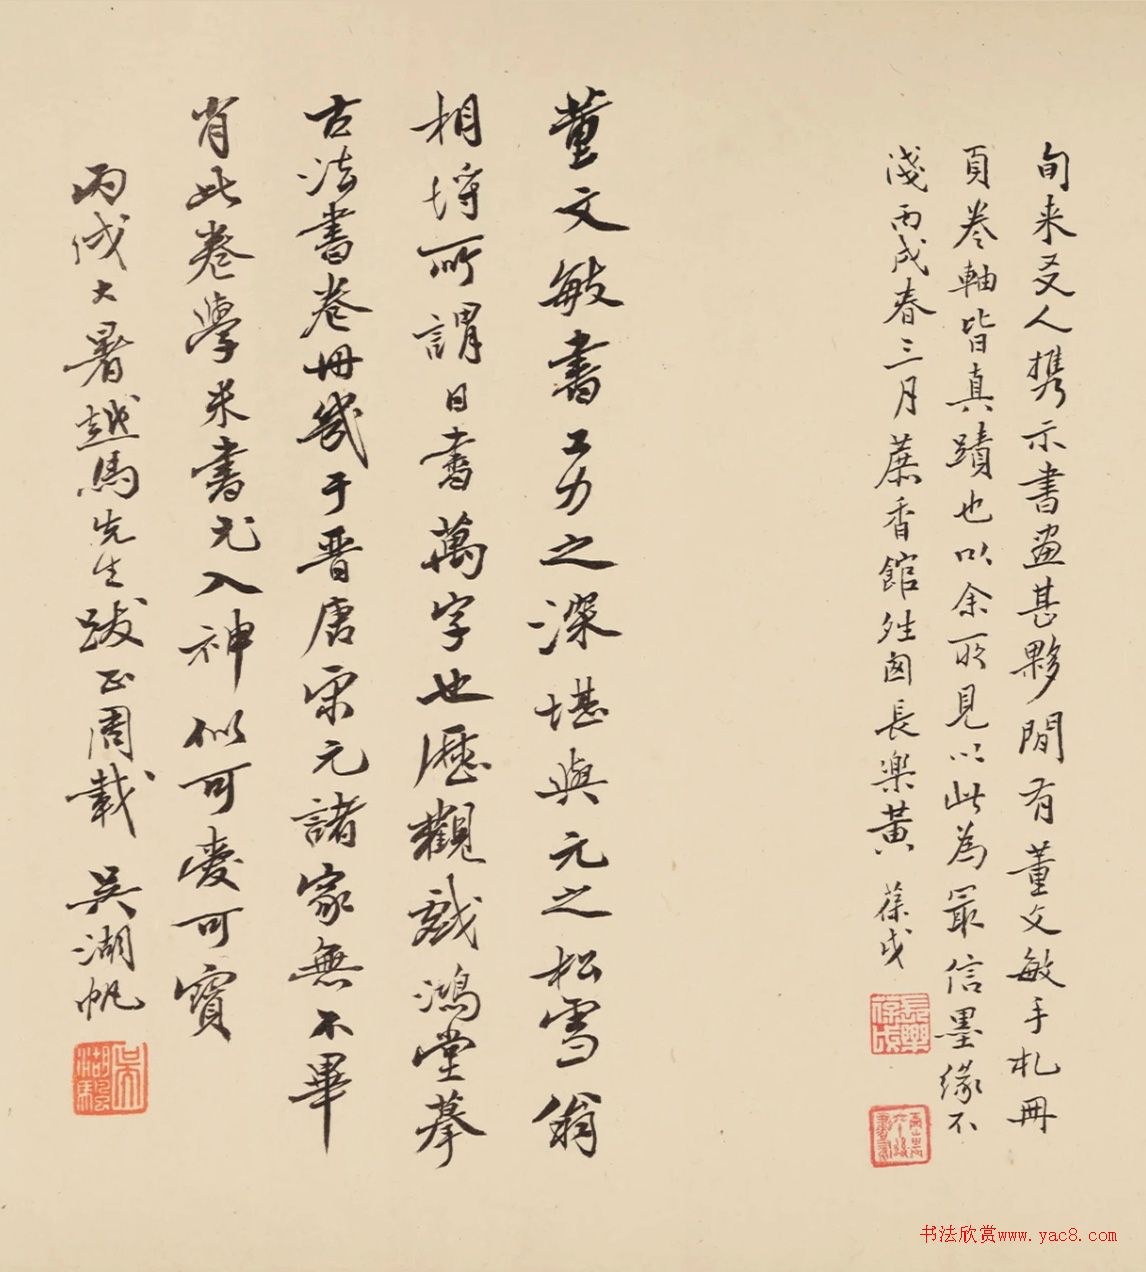 旬来友人携示書畫甚夥閒有董文敏手札冊
頁卷軸皆真蹟也以余所見以此為最信墨緣不
淺丙戌春三月蔗香館長樂黃葆戉
董文敏書工力之深堪與元之松雪翁
相埒所謂日書萬字也歷觀戲鴻堂摹
古法書卷冊幾于晉唐宋元諸家無不畢
肖此卷學米書尤入神似可愛可寶
丙戌大暑越馬先生跋正周載 吳湖帆
吳湖颿
书法欣赏www.yac8.com